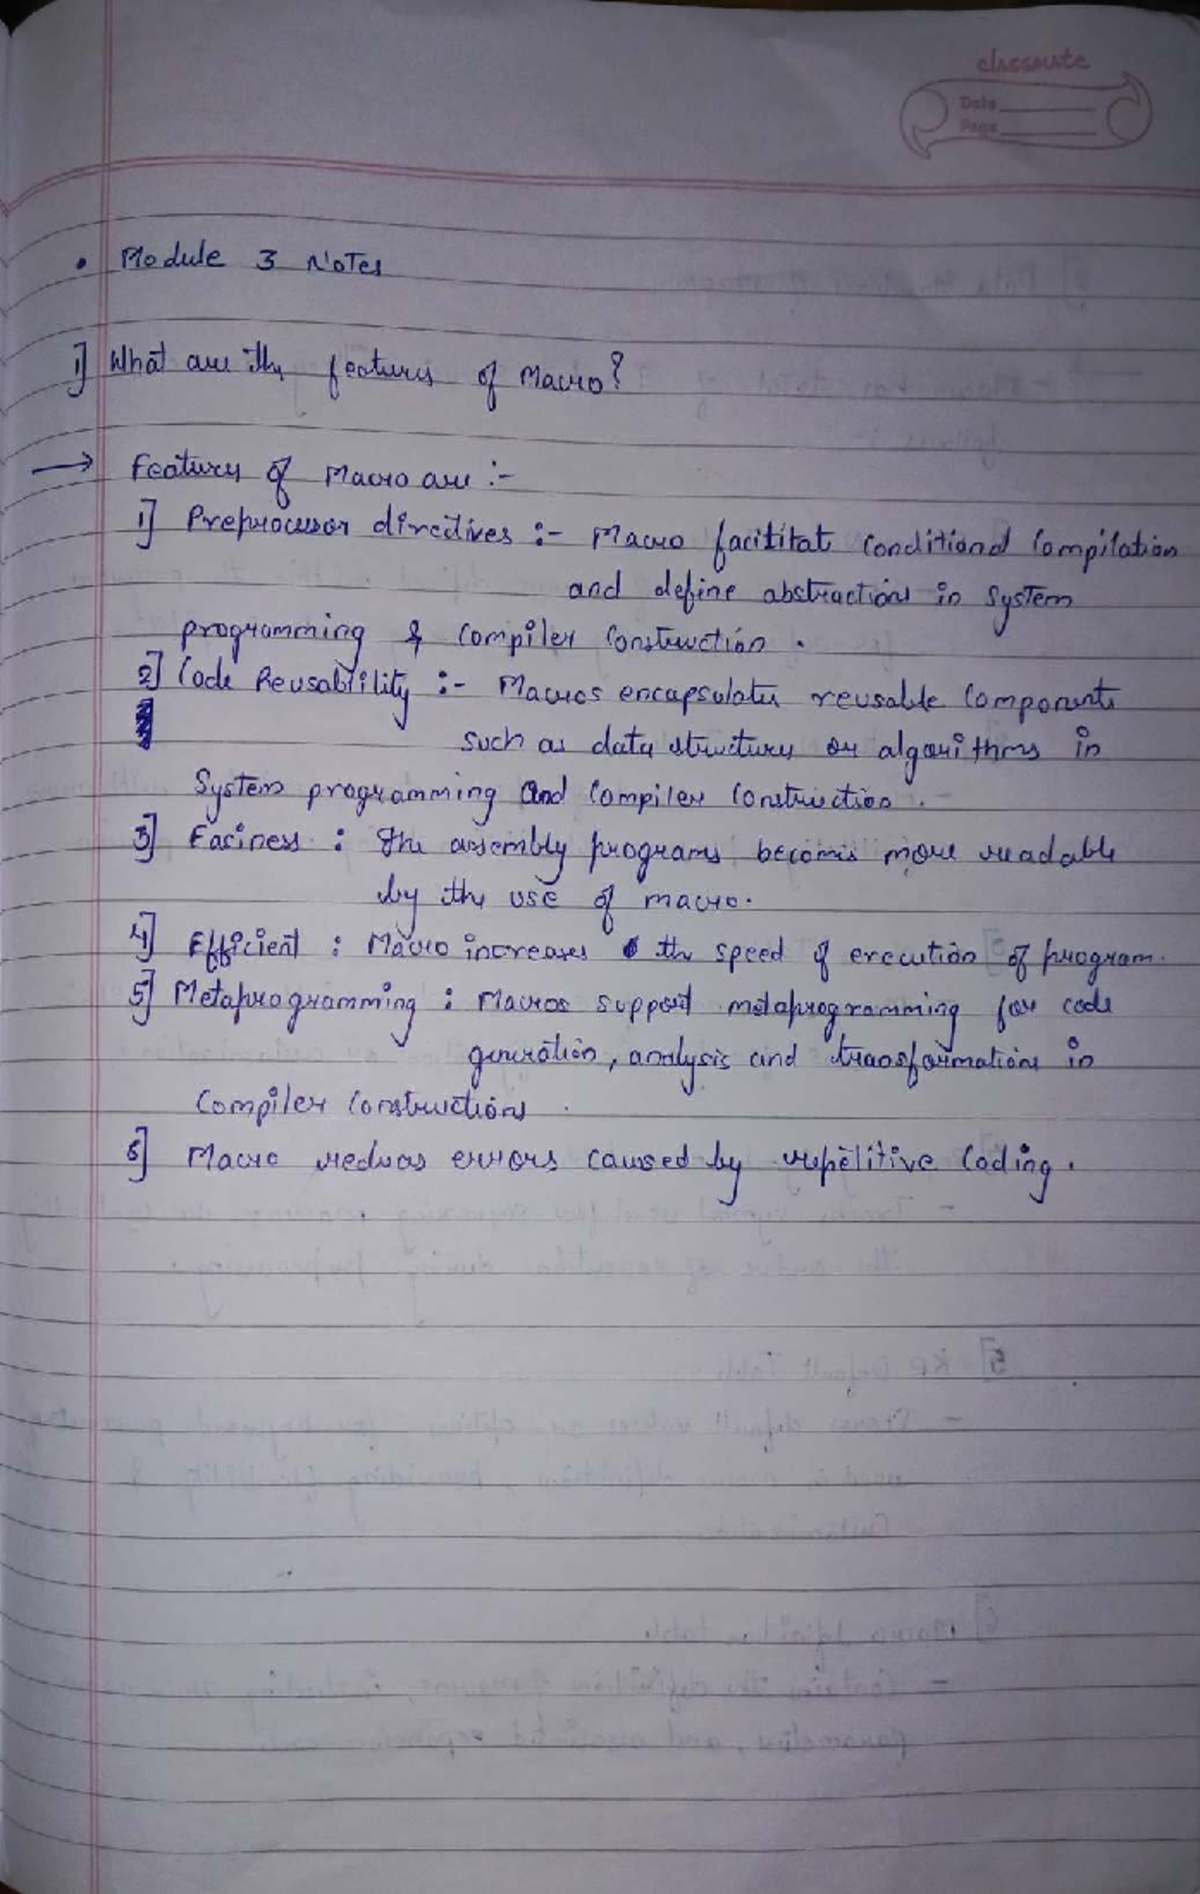 classmate
Date
Page
• Module 3 Notes
1] What are the features of Macro?
→ Features of Macro are :-
1] Preprocessor directives :- Macro facititat conditional compilation
and define abstractions in system
programming & compiler construction.
2] Code Reusability :- Macros encapsulates reusable components
such as data structures or algorithms in
System programming and compiler construction.
3] Easiness : The assembly programs becomes more readable
by the use of macro.
4] Efficient : Macro increases the speed of execution of program.
5] Metaprogramming : Macros support metaprogramming for code
generation, analysis and transformations in
compiler constructions.
6] Macro reduces errors caused by repetitive coding.